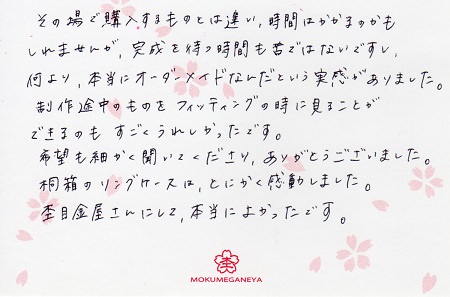 その場で購入するものとは違い、時間はかかるのかも
しれませんが、完成を待つ時間も苦ではないですし、
何より、本当にオーダーメイドなんだという実感がありました。
制作途中のものをフィッティングの時に見ることが
できるのもすごくうれしかったです。
希望も細かく聞いてくださり、ありがとうございました。
桐箱のリングケースは、とにかく感動しました。
杢目金屋さんにして、本当によかったです。
MOKUMEGANEYA